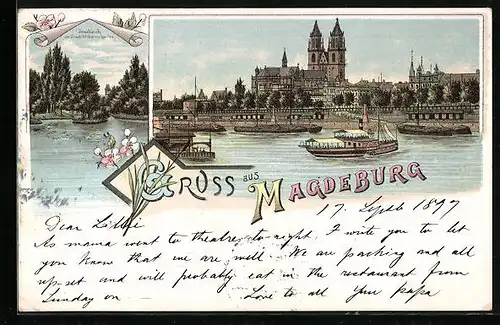 GRUSS aus MAGDEBURG
17. Septb 1897
Dear Lillie
As mama went to theatre to night, I write you to let
you know that we are well. We are packing and all
upset and will probably eat in the restaurant from
Sunday on Love to all Your papa